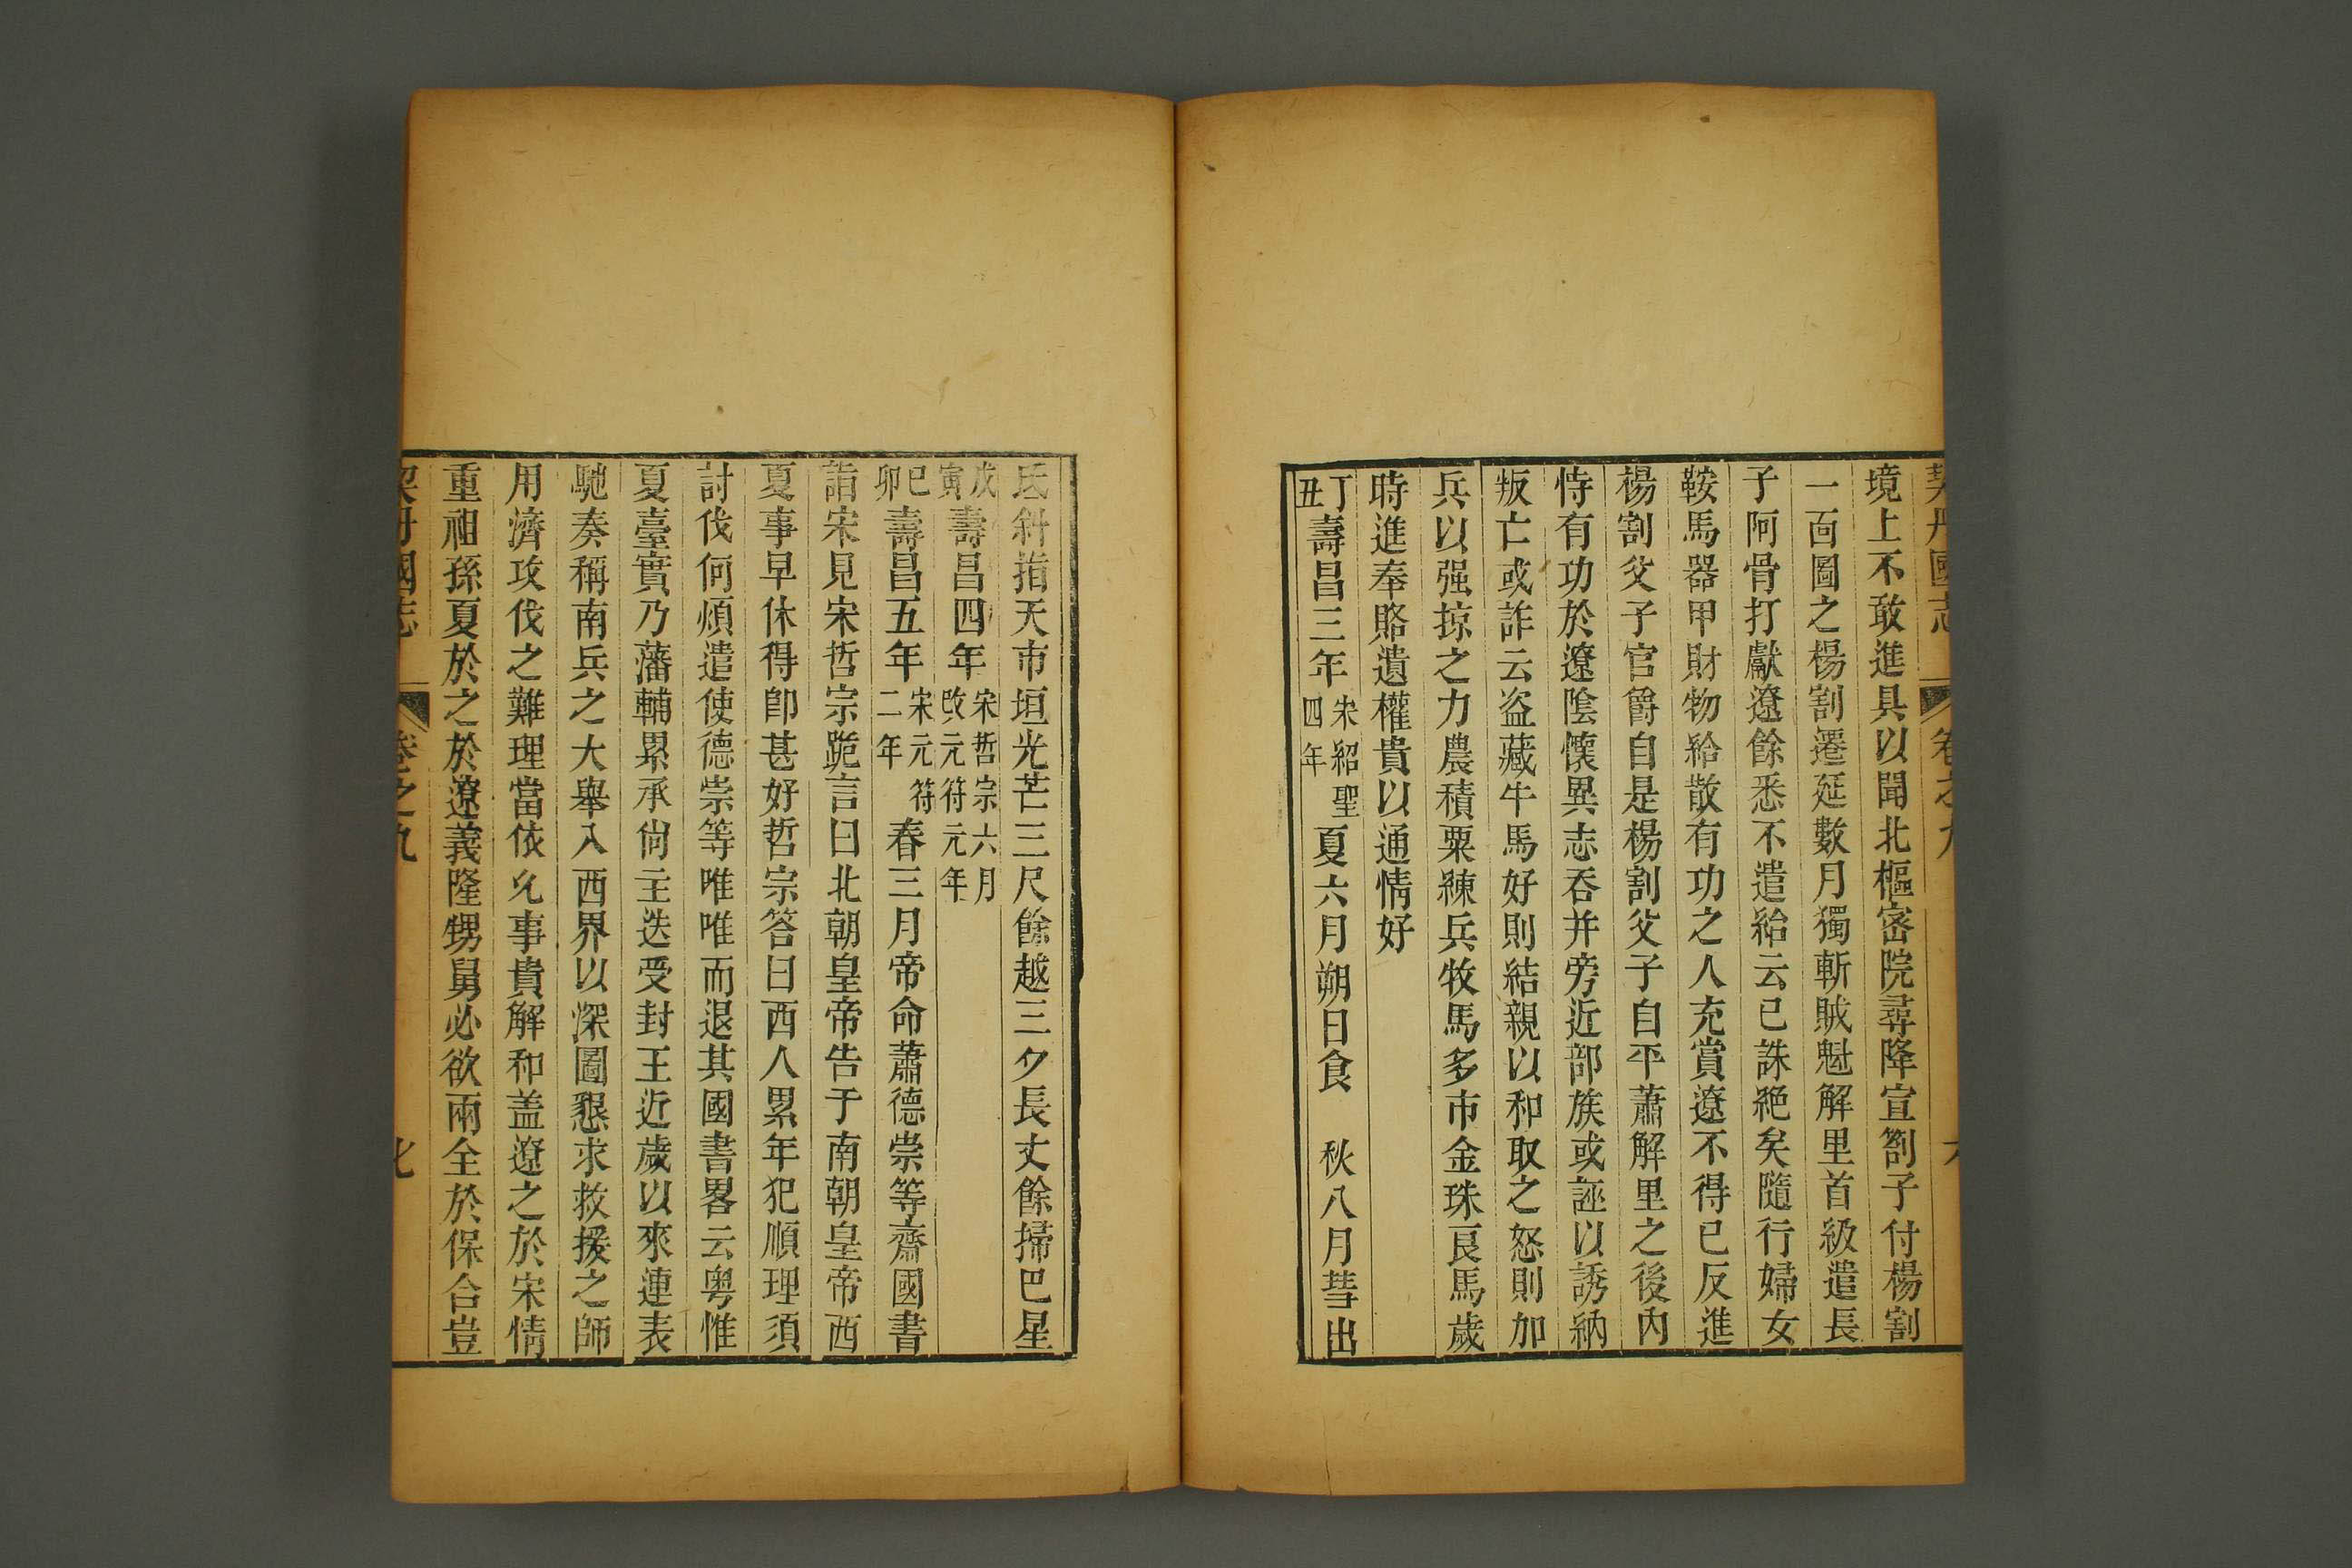 契丹國志 卷之九 六
境上不敢進具以聞北樞密院尋降宣劄子付楊割
一靣圖之楊割遷延數月獨斬賊魁解里首級遣長
子阿骨打獻遼餘悉不遣給云已誅絶矣隨行婦女
鞍馬器甲財物給散有功之人充賞遼不得已反進
楊割父子官爵自是楊割父子自平蕭解里之後內
恃有功於遼陰懷異志吞并旁近部族或誣以誘納
叛亡或詐云盗藏牛馬好則結親以和取之怒則加
兵以强掠之力農積粟練兵牧馬多市金珠良馬歲
時進奉賂遺權貴以通情好
丁丑壽昌三年宋紹聖四年夏六月朔日食 秋八月彗出
氐斜指天市垣光芒三尺餘越三夕長丈餘掃巴星
戊寅壽昌四年宋哲宗六月改元符元年
巳卯壽昌五年宋元符二年春三月帝命蕭德崇等齎國書
詣宋見宋哲宗跪言曰北朝皇帝告于南朝皇帝西
夏事早休得即甚好哲宗答曰西人累年犯順理須
討伐何煩遣使德崇等唯唯而退其國書畧云粤惟
夏臺實乃藩輔累承尙主迭受封王近歲以來連表
馳奏稱南兵之大舉入西界以深圖懇求救援之師
用濟攻伐之難理當依允事貴解和盖遼之於宋情
重祖孫夏於之於遼義隆甥舅必欲兩全於保合豈
契丹國志 卷之九 七